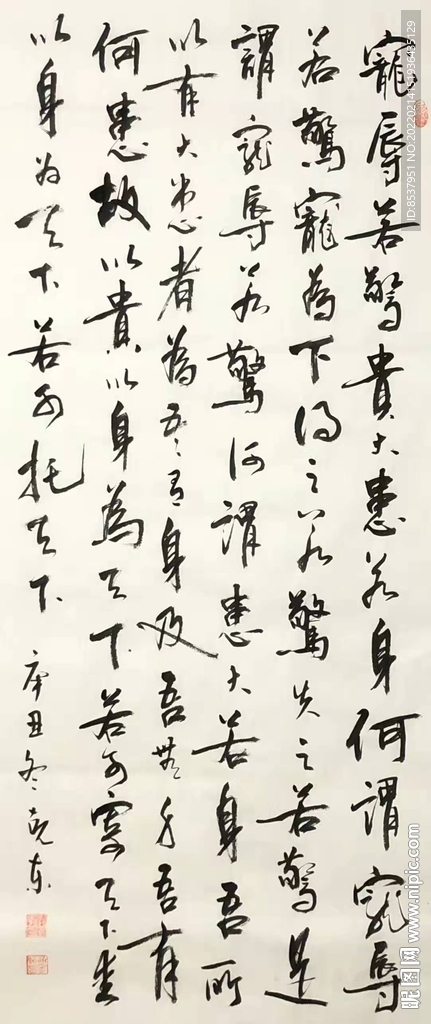 寵辱若驚貴大患若身何謂寵辱
若驚寵為下得之若驚失之若驚是
謂寵辱若驚何謂患大若身吾所
以有大患者為吾有身及吾無身吾有
何患故以貴以身為天下若可寄天下愛
以身为天下若可托天下
辛丑冬
ID:8537951 NO:20220214151936485129
昵图网 www.nipic.com